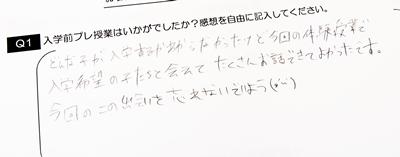 Q1 入学前プレ授業はいかがでしたか？感想を自由に記入してください。
どんな子が入学するかわからなかったけど今回の体験授業で
入学希望の子たちと会えて たくさんお話できてよかったです。
今回のこの出会いを忘れないでいよう(^^)